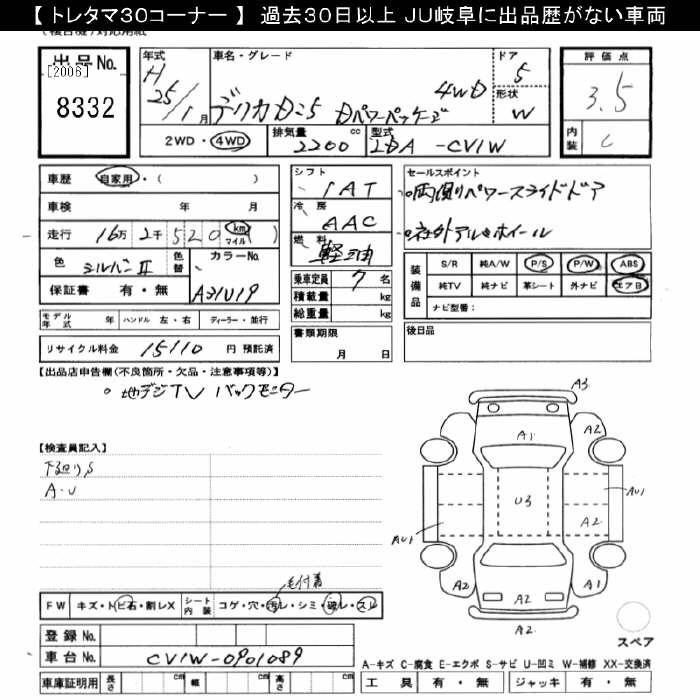 【 トレタマ30コーナー 】 過去30日以上 JU岐阜に出品歴がない車両
出品No.
[2006]
8332
年式 H 25/1 月
車名・グレード
デリカD:5 Dパワーパッケージ 4WD
ドア 5
形状 W
2WD・4WD
排気量 2200 cc
型式 LDA-CV1W
評価点 3.5
内装 C
車歴 自家用・( )
車検 年 月
走行 16万 2千 5 2 0 km マイル
色 シルバーII 色替 カラーNo. A31U19
保証書 有・無
モデル年式 年 ハンドル 左・右 ディーラー・並行
リサイクル料金 15110 円 預託済
シフト IAT
冷房 AAC
燃料 軽油
乗車定員 7 名
積載量 kg
総重量 kg
書類期限
月 日
セールスポイント
両側パワースライドドア
社外アルミホイール
装備品
S/R 純A/W P/S P/W ABS
純TV 純ナビ 革シート 外ナビ エアB
ナビ型番:
後日品
【出品店申告欄(不良箇所・欠品・注意事項等)】
地デジTV バックモニター
【検査員記入】
下廻りS
A・U
A3
A1
A2
A2
U3
AU1
A2
AU1
A2
A2
A2
A1
A2
スペア
毛付着
FW キズ・トビ石・割レX シート内装 コゲ・穴・汚レ・シミ・破レ・スレ
登録 No.
車台 No. CV1W-0901089
車庫証明用 長さ cm 幅 cm 高さ cm
A-キズ C-腐食 E-エクボ S-サビ U-凹ミ W-補修 XX-交換済
工具 有・無 ジャッキ 有・無